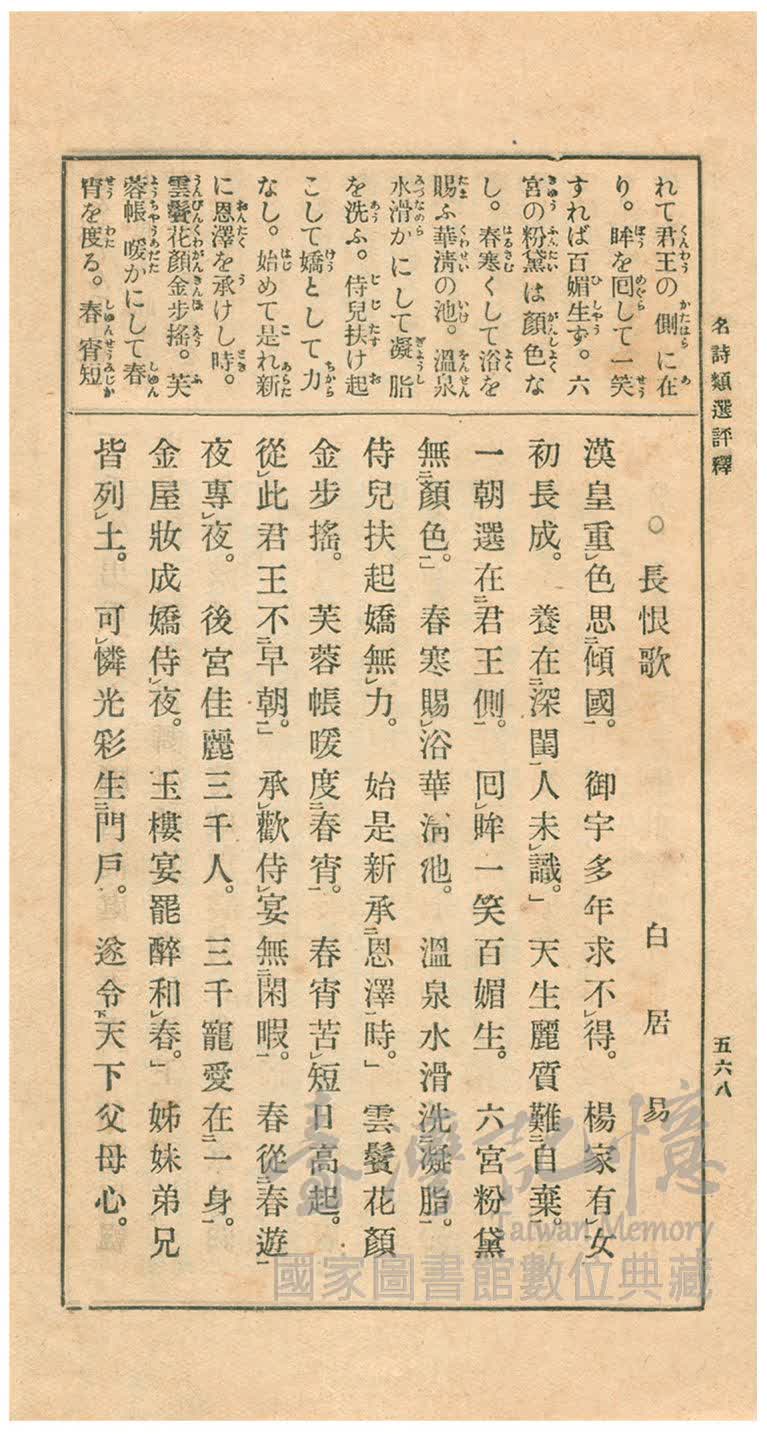 名詩類選評釋
五六八
れて君王の側に在
り。眸を囘して一笑
すれば百媚生ず。六
宮の粉黛は顏色な
し。春寒くして浴を
賜ふ華淸の池。溫泉
水滑かにして凝脂
を洗ふ。侍兒扶け起
こして嬌として力
なし。始めて是れ新
に恩澤を承けし時。
雲鬢花顏金步搖。芙
蓉帳暖かにして春
宵を度る。春宵短
○長恨歌 白居易
漢皇重レ色思二傾國一。御宇多年求不レ得。楊家有レ女
初長成。養在二深閨一人未レ識。」天生麗質難二自棄一。
一朝選在二君王側一。囘レ眸一笑百媚生。六宮粉黛
無二顏色一。」春寒賜レ浴華淸池。溫泉水滑洗二凝脂一。
侍兒扶起嬌無レ力。始是新承二恩澤一時。」雲鬢花顏
金步搖。芙蓉帳暖度二春宵一。春宵苦レ短日高起。
從レ此君王不二早朝一。」承レ歡侍レ宴無二閑暇一。春從二春遊一
夜專レ夜。後宮佳麗三千人。三千寵愛在二一身一。
金屋妝成嬌侍レ夜。玉樓宴罷醉和レ春。」姊妹弟兄
皆列レ土。可レ憐光彩生二門戶一。遂令下天下父母心。
臺灣記憶
Taiwan Memory
國家圖書館數位典藏